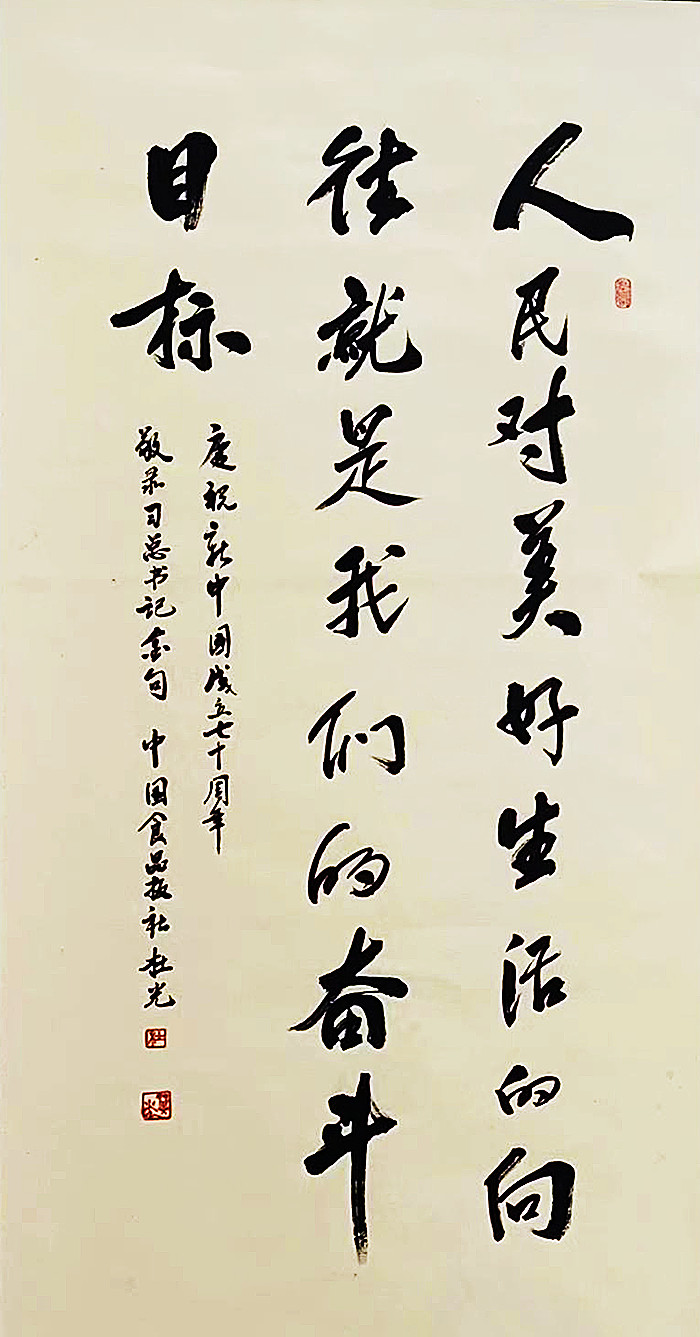 人民对美好生活的向
往就是我们的奋斗
目标
庆祝新中国成立七十周年
敬录习总书记金句 中国食品报社 杜光